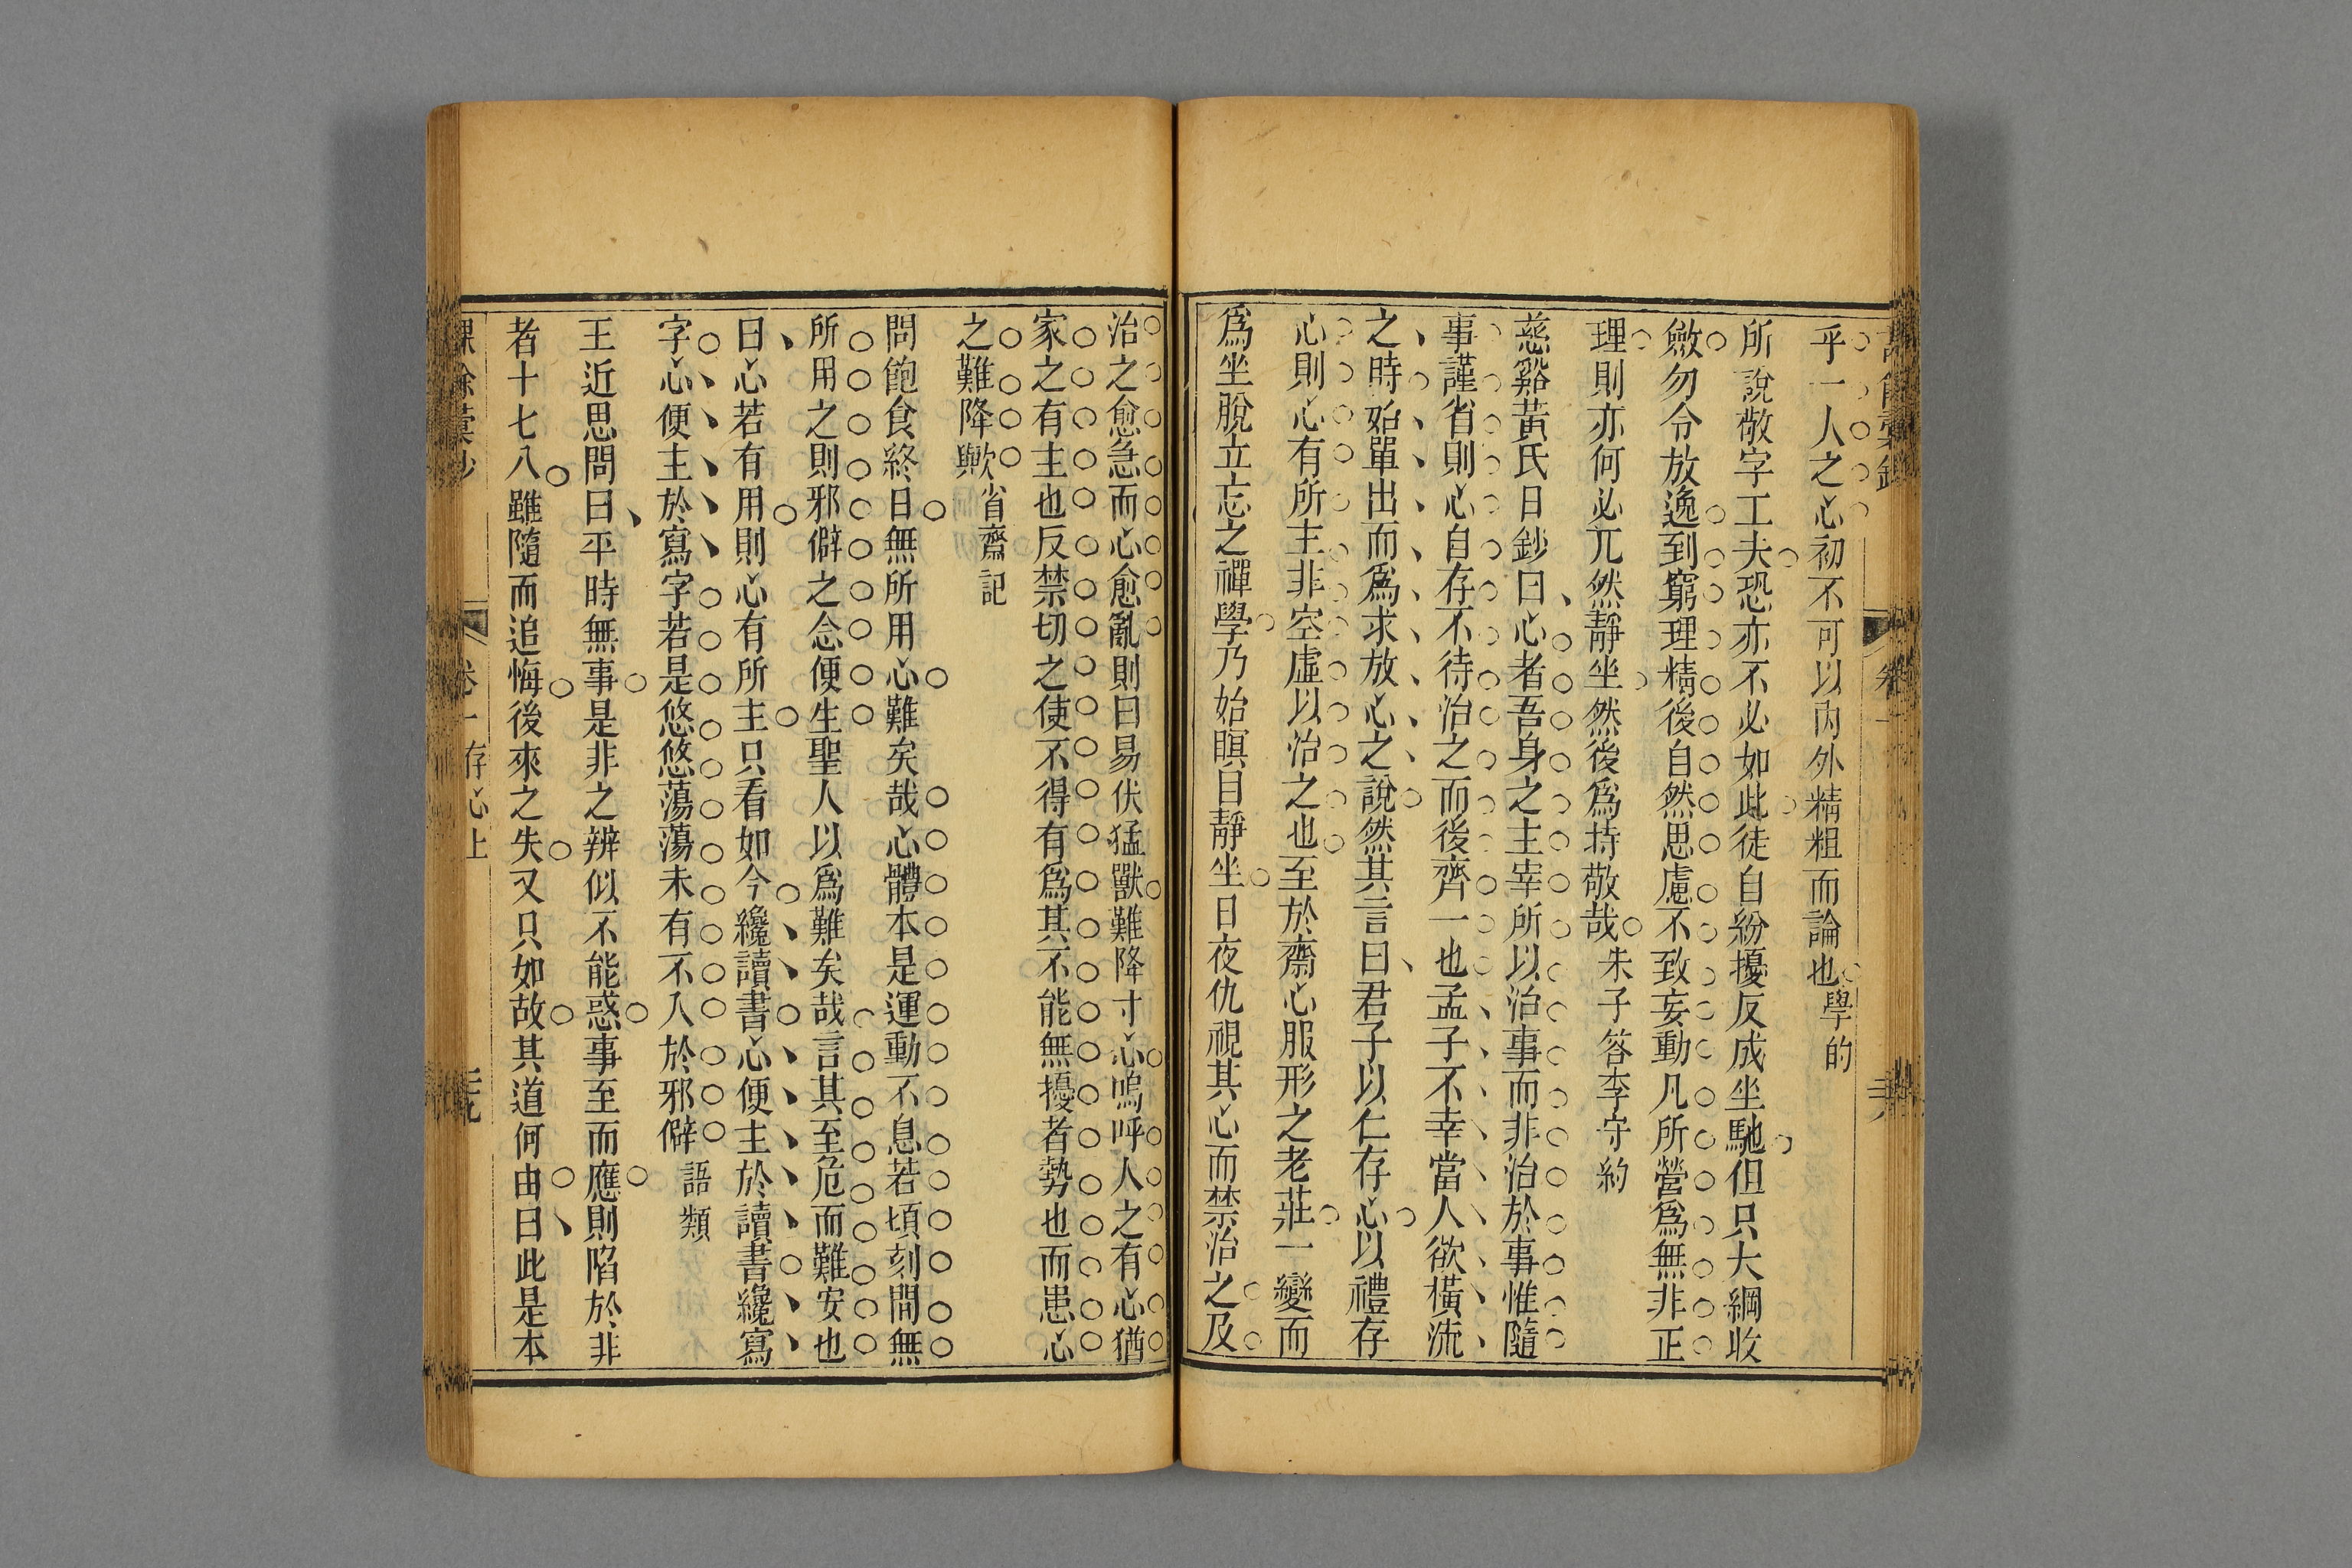 乎一人之心初不可以內外精粗而論也學的
所說敬字工夫恐亦不必如此徒自紛擾反成坐馳但只大綱收
斂勿令放逸到窮理精後自然思慮不致妄動凡所營爲無非正
理則亦何必兀然靜坐然後爲持敬哉朱子答李守約
慈谿黃氏日鈔曰心者吾身之主宰所以治事而非治於事惟隨
事謹省則心自存不待治之而後齊一也孟子不幸當人欲橫流
之時始單出而爲求放心之說然其言曰君子以仁存心以禮存
心則心有所主非空虛以治之也至於齋心服形之老莊一變而
爲坐脫立忘之禪學乃始瞑目靜坐日夜仇視其心而禁治之及
治之愈急而心愈亂則曰易伏猛獸難降寸心嗚呼人之有心猶
家之有主也反禁切之使不得有爲其不能無擾者勢也而患心
之難降歟省齋記
問飽食終日無所用心難矣哉心體本是運動不息若頃刻間無
所用之則邪僻之念便生聖人以爲難矣哉言其至危而難安也
曰心若有用則心有所主只看如今纔讀書心便主於讀書纔寫
字心便主於寫字若是悠悠蕩蕩未有不入於邪僻語類
王近思問曰平時無事是非之辨似不能惑事至而應則陷於非
者十七八雖隨而追悔後來之失又只如故其道何由曰此是本
卷一存心上